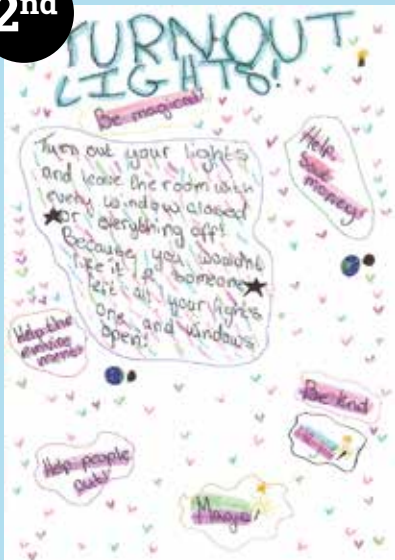 2nd
TURN OUT
LIGHTS!
Be magical!
Turn out your lights
and leave the room with
every window closed
or everything off!
Because you wouldnt
like it if someone
left all your lights
one and windows
open!
Help
Save
money!
Help the
Be kind
Help people
out!
Magic!